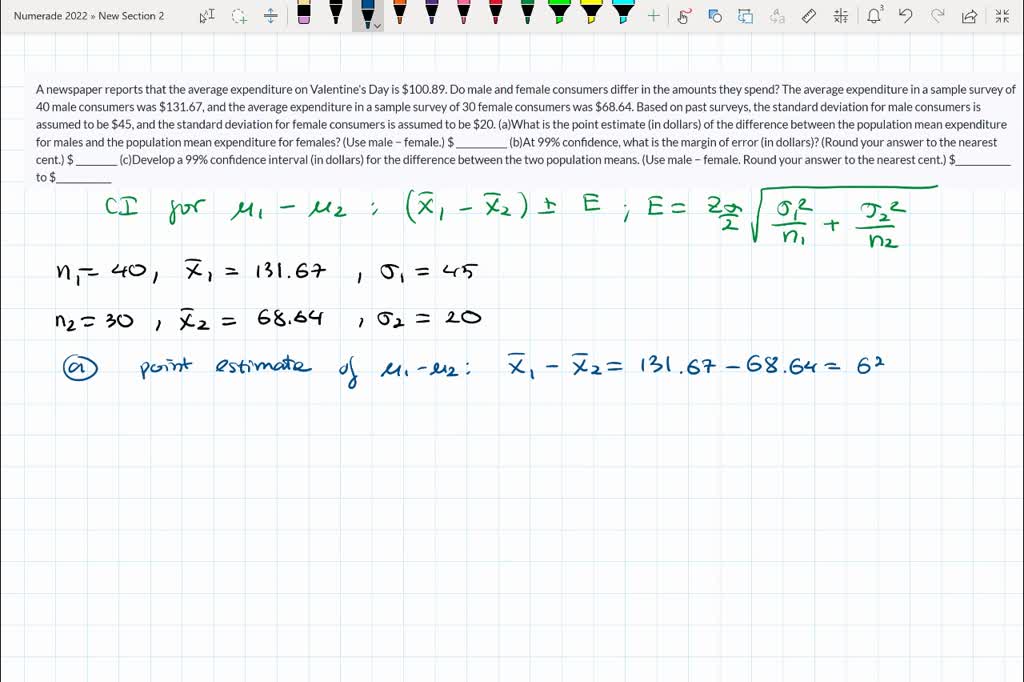 Numerade 2022 » New Section 2
3
A newspaper reports that the average expenditure on Valentine's Day is $100.89. Do male and female consumers differ in the amounts they spend? The average expenditure in a sample survey of
40 male consumers was $131.67, and the average expenditure in a sample survey of 30 female consumers was $68.64. Based on past surveys, the standard deviation for male consumers is
assumed to be $45, and the standard deviation for female consumers is assumed to be $20. (a)What is the point estimate (in dollars) of the difference between the population mean expenditure
for males and the population mean expenditure for females? (Use male − female.) $ ________ (b)At 99% confidence, what is the margin of error (in dollars)? (Round your answer to the nearest
cent.) $ ______ (c)Develop a 99% confidence interval (in dollars) for the difference between the two population means. (Use male − female. Round your answer to the nearest cent.) $ ________
to $ ________
CI for μ₁ − μ₂ : (x̄₁ − x̄₂) ± E ; E = z_{α/2} √(σ₁²/n₁ + σ₂²/n₂)
n₁ = 40, x̄₁ = 131.67 , σ₁ = 45
n₂ = 30 , x̄₂ = 68.64 , σ₂ = 20
(a) point estimate of μ₁ − μ₂ : x̄₁ − x̄₂ = 131.67 − 68.64 = 62